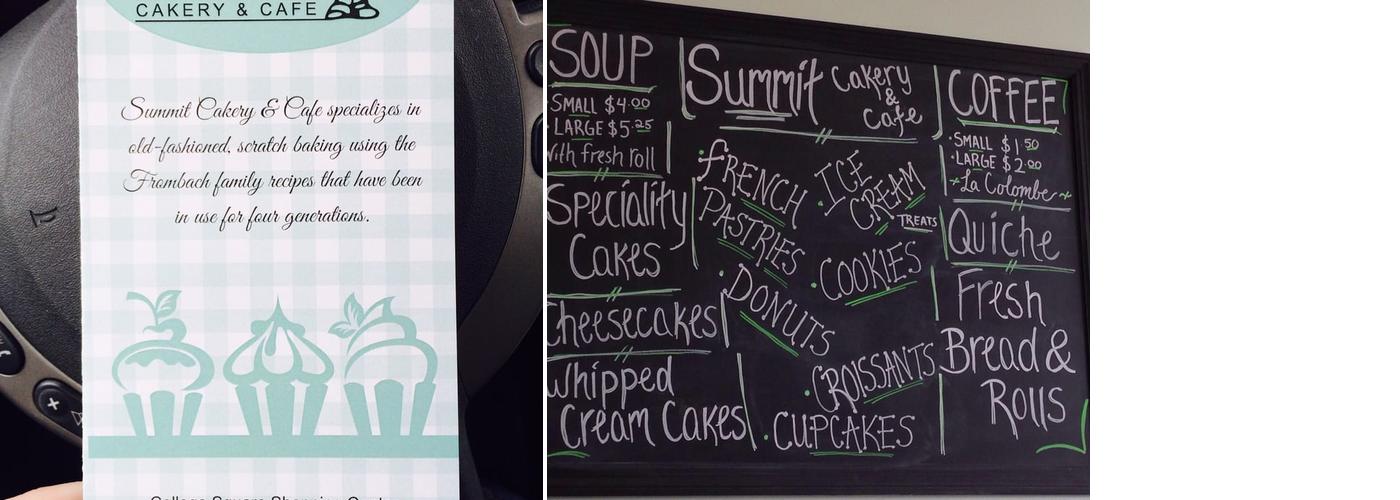 CAKERY & CAFE
Summit Cakery & Cafe specializes in
old-fashioned, scratch baking using the
Frombach family recipes that have been
in use for four generations.
SOUP
SMALL $4.00
LARGE $5.25
With fresh roll
Speciality
Cakes
Cheesecakes
Whipped
Cream Cakes
Summit Cakery
&
Cafe
FRENCH
PASTRIES
ICE
CREAM
TREATS
COOKIES
DONUTS
CROISSANTS
CUPCAKES
COFFEE
SMALL $1.50
LARGE $2.00
La Colombe
Quiche
Fresh
Bread &
Rolls